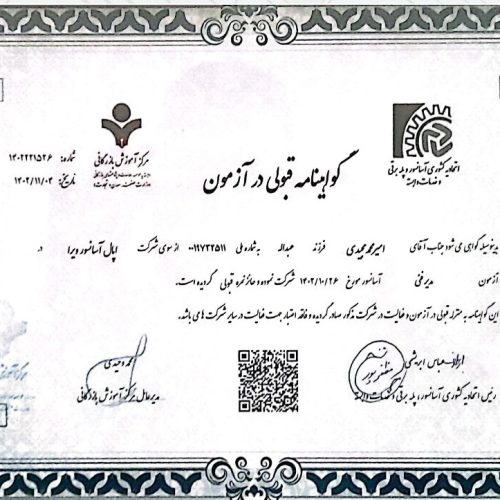 اتحادیه کشوری آسانسور و پله برقی
و خدمات وابسته
مرکز آموزش بازرگانی
شماره: ۱۴۰۲۲۲۱۵۲۶
تاریخ: ۱۴۰۲/۱۱/۰۴
گواهینامه قبولی در آزمون
بدینوسیله گواهی می شود جناب آقای امیرمحمد مجیدی فرزند عبداله به شماره ملی ۰۰۱۹۷۳۲۵۱۱ از سوی شرکت اپال آسانسور ویرا در
آزمون مدیر فنی آسانسور مورخ ۱۴۰۲/۱۰/۲۶ شرکت نموده و حائز نمره قبولی گردیده است.
این گواهینامه به منزله قبولی در آزمون و فعالیت در شرکت مذکور صادر گردیده و فاقد اعتبار جهت فعالیت در سایر شرکت ها می باشد.
رئیس اتحادیه کشوری آسانسور و پله برقی و خدمات وابسته
محمد وحیدی
مدیرعامل مرکز آموزش بازرگانی